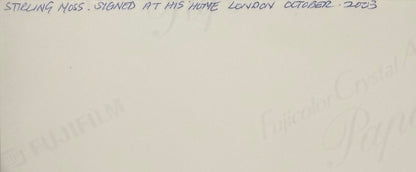 STIRLING MOSS. SIGNED AT HIS HOME LONDON OCTOBER. 2003
FUJIFILM
Fujicolor Crystal A
Pap